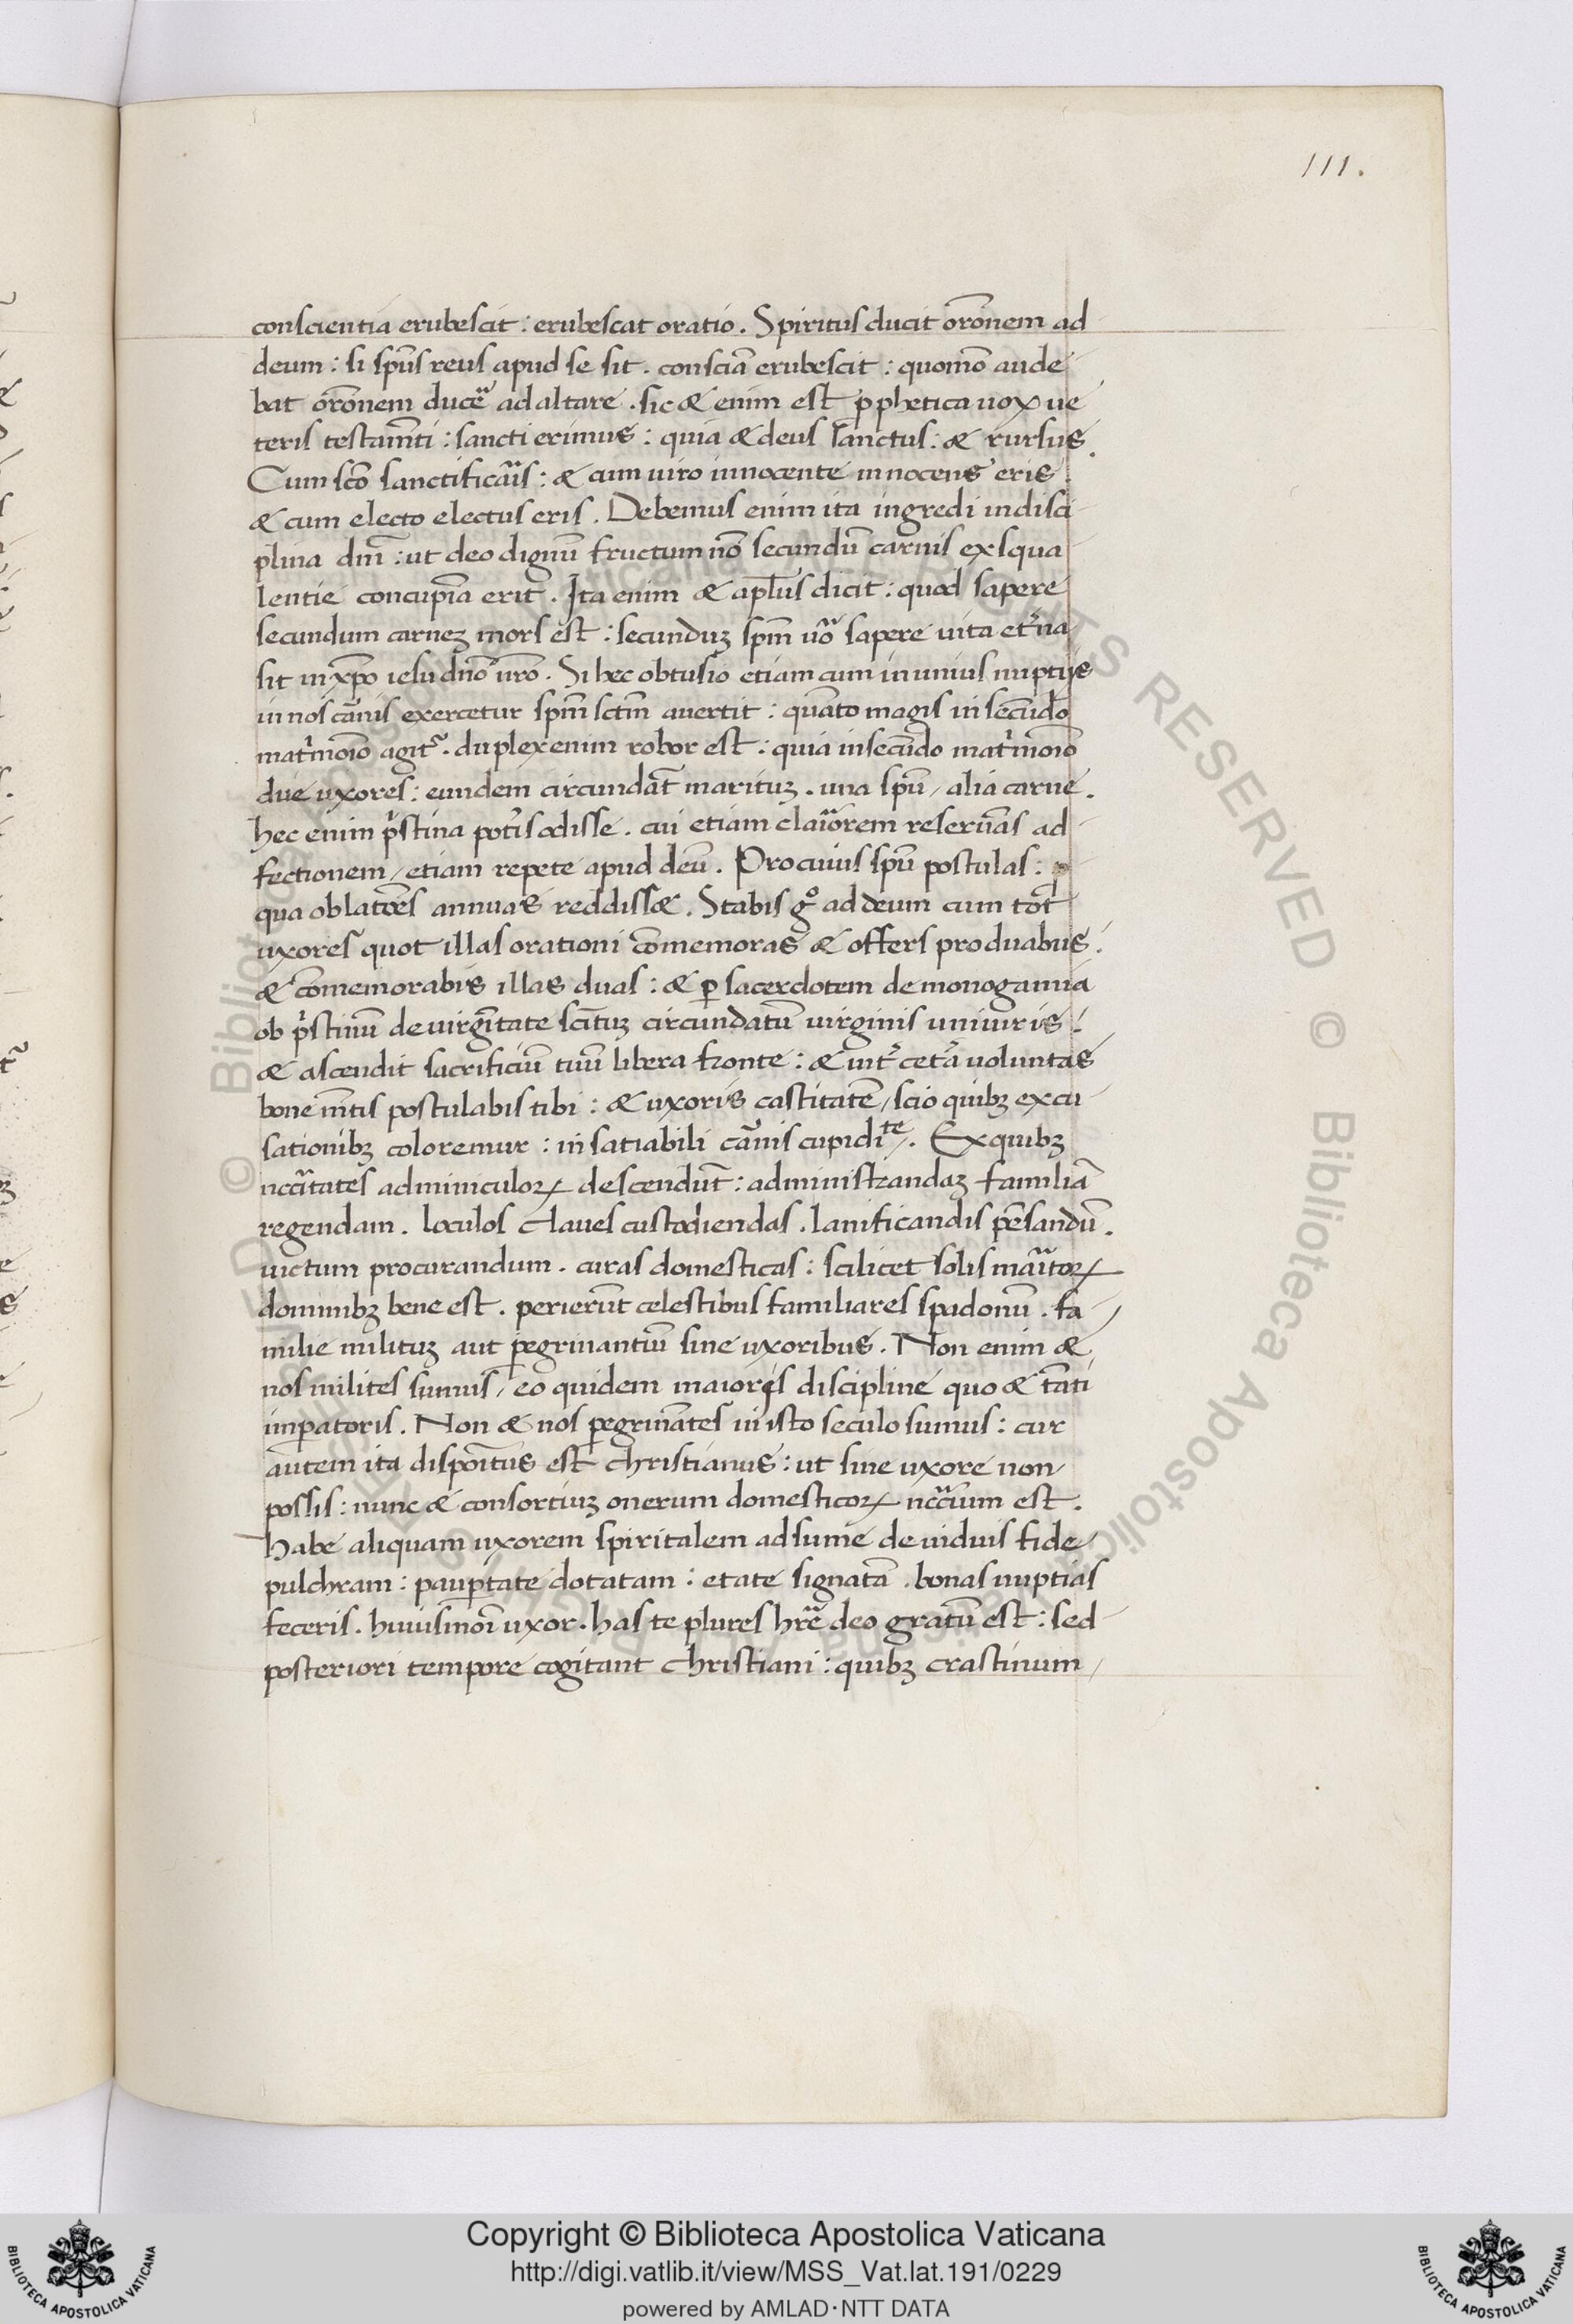 111.
conscientia erubescit : erubescat oratio . Spiritus ducit orōnem ad
deum : si spūs reus apud se sit . consciā erubescit : quomō aude
bat orōnem ducē ad altare . sic & enim est p̱phetica uox ue
teris testamti : sancti erimus : quia & deus sanctus : & rursus .
Cum scō sanctificāis : & cum uiro innocente innocens eris .
& cum electo electus eris . Debemus enim ita ingredi in disci
plina dnī : ut deo dignū fructum nō secundū carnis ex squa
lentie concupīa erit . Ita enim & aplūs dicit : quod sapere
secundum carneꝫ mors est : secunduꝫ spm̄ uō sapere uita et̄na
sit in xpō iesu dnō nrō . Si hec obtusio etiam cum in unius nuptijs
in nos cānis exercetur spm̄ sctm̄ auertit : quāto magis in secūdo
matr̄monio agit̄ . duplex enim robor est : quia in secūdo matr̄monio
due uxores : eundem circundāt marituꝫ . una spū / alia carne .
hec enim p̄stina pot̄is odisse . cui etiam claiōrem reseruās ad
fectionem / etiam repete apud deū . Pro cuius spū postulas : p̱
qua oblatōes annuas reddissæ . Stabis gͦ ad deum cum tot
uxores quot illas orationi cōmemoras & offers pro duabus .
& cōmemorabis illas duas : & ꝑ sacerdotem de monogamia
ob p̄stinū de uirgītate scītuꝫ circundatū uirginis uniuiris :
& ascendit sacrificiū tuū libera fronte : & int̄ cet̄a uoluntas
bone mtis postulabis tibi : & uxoris castitatē / scio quibꝫ excu
sationibꝫ coloremur : insatiabili cānis cupidiᵗᵉ . Ex quibꝫ
nccātates adminiculoꝝ descendūt : administrandaꝫ familiā
regendam . loculos claues custodiendas . lanificandis pēsandū .
uictum procurandum . curas domesticas : scilicet solis māitoꝝ
dominibꝫ bene est . perierūt celestibus familiares spadonū . fa
milie milituꝫ aut ꝑegrinantiū sine uxoribus . Non enim &
nos milites sumus / eo quidem maioris discipline quo & tāti
imꝑatoris . Non & nos ꝑegrināntes in isto seculo sumus : cur
autem ita dispoītus est christianus : ut sine uxore non
possis : nunc & consortiuꝫ onerum domesticoꝝ nccāium est .
habe aliquam uxorem spiritalem adsume de uiduis fide
pulchram : pauꝑtate dotatam : etate signatā . bonas nuptias
feceris . huiusmōi uxor . has te plures hrē deo gratū est : sed
posteriori tempore cogitant christiani : quibꝫ crastinum /
Copyright © Biblioteca Apostolica Vaticana
http://digi.vatlib.it/view/MSS_Vat.lat.191/0229
powered by AMLAD·NTT DATA